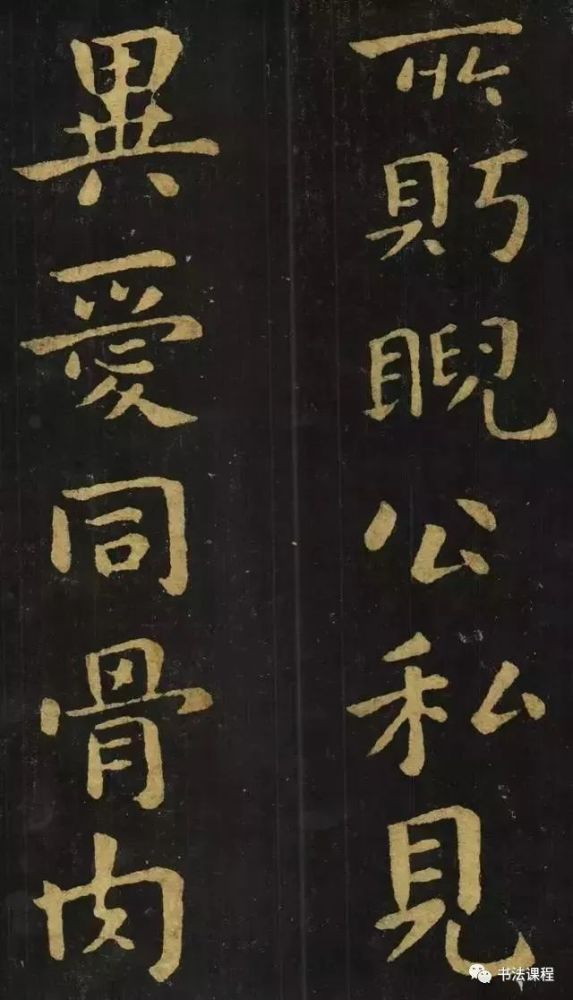 所眄睨公私見
異愛同骨肉
书法课程